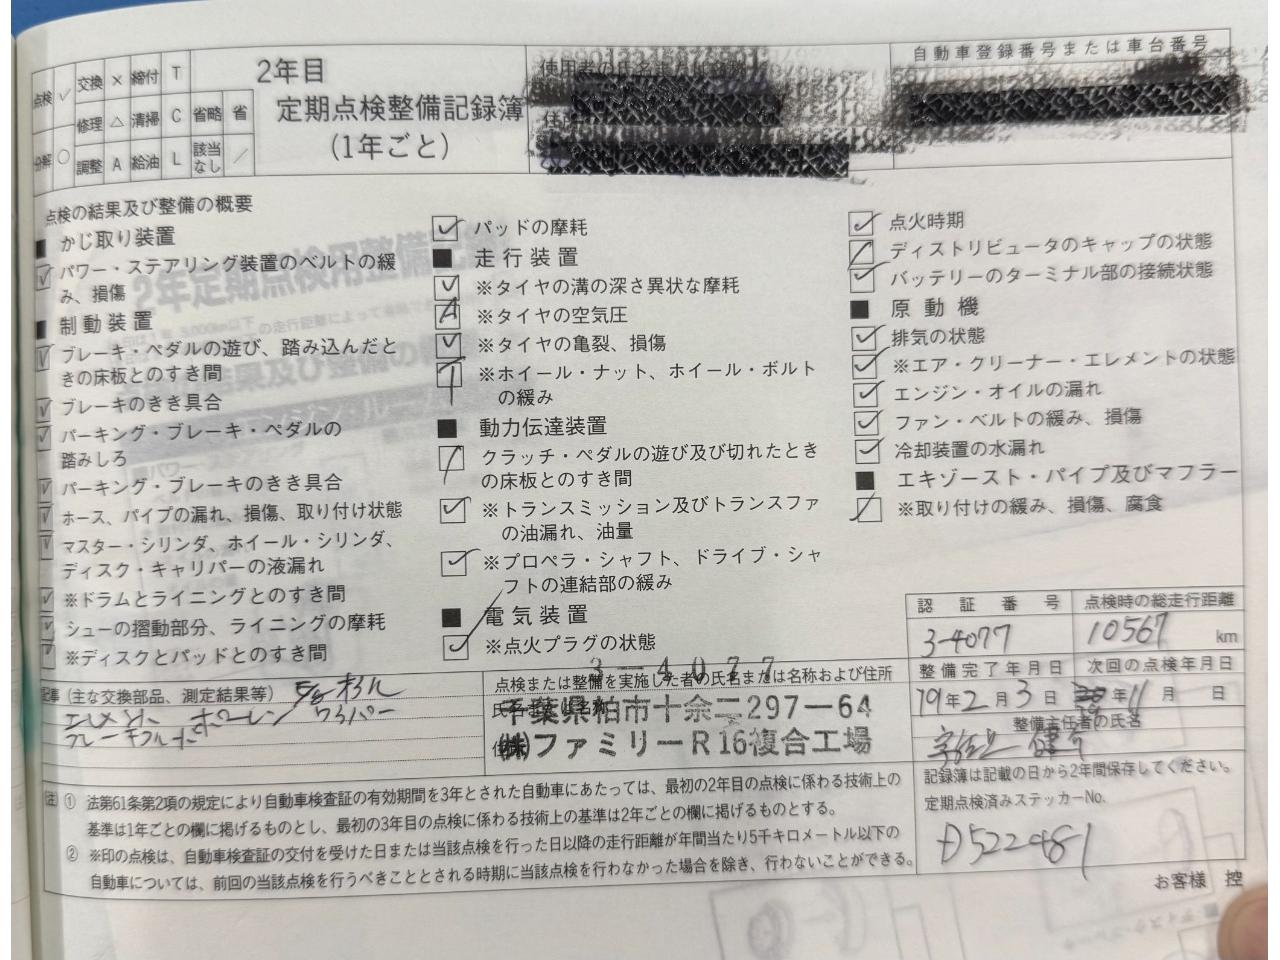 点検 ✓ 交換 × 締付 T
修理 △ 清掃 C 省略 省
分解 ○ 調整 A 給油 L 該当なし ／
2年目
定期点検整備記録簿
(1年ごと)
使用者の氏名
住所
自動車登録番号または車台番号
点検の結果及び整備の概要
■ かじ取り装置
パワー・ステアリング装置のベルトの緩
み、損傷
■ 制動装置
ブレーキ・ペダルの遊び、踏み込んだと
きの床板とのすき間
ブレーキのきき具合
パーキング・ブレーキ・ペダルの
踏みしろ
パーキング・ブレーキのきき具合
ホース、パイプの漏れ、損傷、取り付け状態
マスター・シリンダ、ホイール・シリンダ、
ディスク・キャリパーの液漏れ
※ドラムとライニングとのすき間
シューの摺動部分、ライニングの摩耗
※ディスクとパッドとのすき間
パッドの摩耗
■ 走行装置
※タイヤの溝の深さ異状な摩耗
※タイヤの空気圧
※タイヤの亀裂、損傷
※ホイール・ナット、ホイール・ボルト
の緩み
■ 動力伝達装置
クラッチ・ペダルの遊び及び切れたとき
の床板とのすき間
※トランスミッション及びトランスファ
の油漏れ、油量
※プロペラ・シャフト、ドライブ・シャ
フトの連結部の緩み
■ 電気装置
※点火プラグの状態
点火時期
ディストリビュータのキャップの状態
バッテリーのターミナル部の接続状態
■ 原動機
排気の状態
※エア・クリーナー・エレメントの状態
エンジン・オイルの漏れ
ファン・ベルトの緩み、損傷
冷却装置の水漏れ
■ エキゾースト・パイプ及びマフラー
※取り付けの緩み、損傷、腐食
認証番号
3-4077
点検時の総走行距離
10567 km
整備完了年月日
19年2月3日
次回の点検年月日
年11月 日
整備主任者の氏名
記事（主な交換部品、測定結果等）
エレメント ワイパー
3-4077
点検または整備を実施した者の氏名または名称および住所
千葉県柏市十余二297-64
(株)ファミリーR16複合工場
記録簿は記載の日から2年間保存してください。
定期点検済みステッカーNo.
D522481
(注) ① 法第61条第2項の規定により自動車検査証の有効期間を3年とされた自動車にあたっては、最初の2年目の点検に係わる技術上の
基準は1年ごとの欄に掲げるものとし、最初の3年目の点検に係わる技術上の基準は2年ごとの欄に掲げるものとする。
② ※印の点検は、自動車検査証の交付を受けた日または当該点検を行った日以降の走行距離が年間当たり5千キロメートル以下の
自動車については、前回の当該点検を行うべきこととされる時期に当該点検を行わなかった場合を除き、行わないことができる。
お客様 控